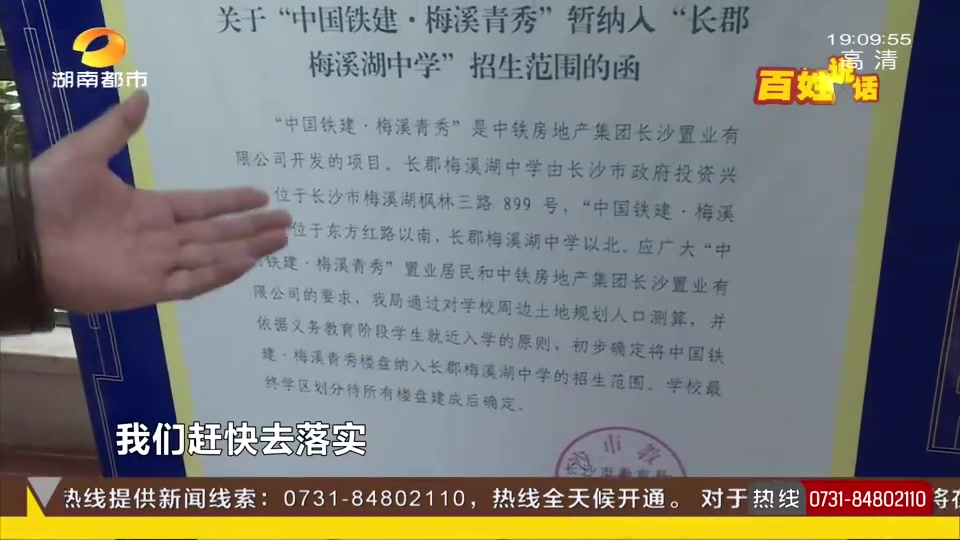 关于“中国铁建·梅溪青秀”暂纳入“长郡
梅溪湖中学”招生范围的函
19:09:55
高清
湖南都市
百姓说话
“中国铁建·梅溪青秀”是中铁房地产集团长沙置业有
限公司开发的项目。长郡梅溪湖中学由长沙市政府投资兴
位于长沙市梅溪湖枫林三路 899 号，“中国铁建·梅溪
位于东方红路以南，长郡梅溪湖中学以北。应广大“中
铁建·梅溪青秀”置业居民和中铁房地产集团长沙置业有
限公司的要求，我局通过对学校周边土地规划人口测算，并
依据义务教育阶段学生就近入学的原则，初步确定将中国铁
建·梅溪青秀楼盘纳入长郡梅溪湖中学的招生范围。学校最
终学区划分待所有楼盘建成后确定。
市教
长沙市教育局
我们赶快去落实
热线提供新闻线索：0731-84802110，热线全天候开通。对于
热线 0731-84802110
将在